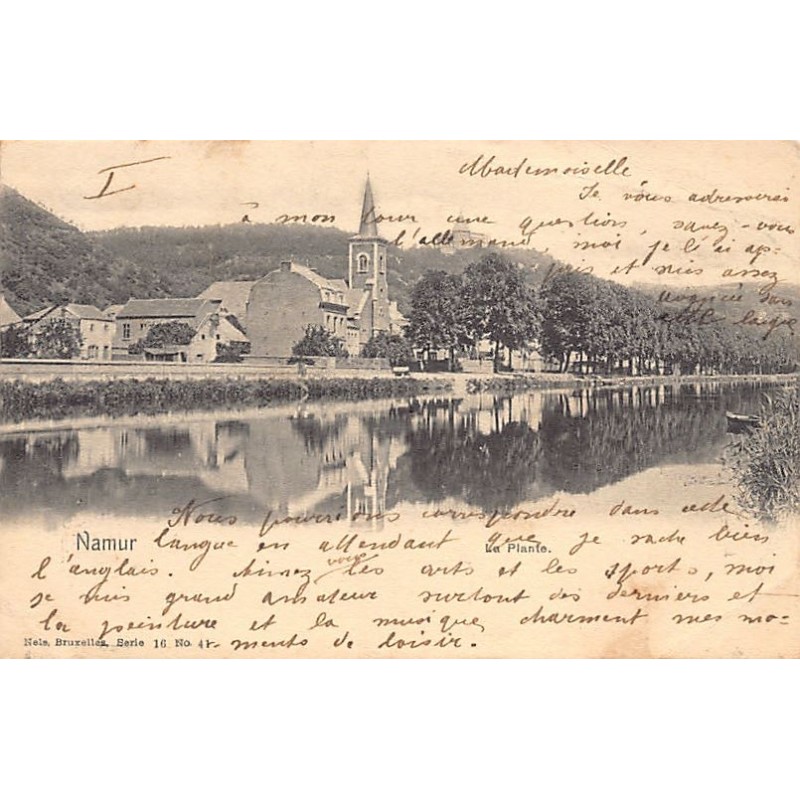 I
Mademoiselle
Je vous adresserai
à mon tour une question, savez-vous
l'allemand, moi je l'ai ap-
pris et suis assez
avancé dans
cette langue
Nous pourrions correspondre dans cette
Namur langue en attendant que je sache bien
La Plante.
l'anglais. Aimez vous les arts et les sports, moi
je suis grand amateur surtout des derniers et
la peinture et la musique charment mes mo-
Nels, Bruxelles, Serie 16 No. 41- ments de loisir.